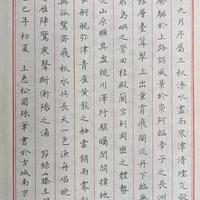 九月序屬三秋潦水盡而寒潭清煙光凝
上路訪風景於崇阿臨帝子之長洲
層臺聳翠上出重霄飛閣流丹下臨無
島嶼之縈迴桂殿蘭宮即岡巒之體勢
山原曠其盈視川澤紆其駭矚閭閻撲地
舸艦彌津青雀黃龍之舳雲銷雨霽彩
與孤鶩齊飛秋水共長天一色漁舟唱晚
雁陣驚寒聲斷衡陽之浦 節錄滕王
巳年初夏 王 松圓珠筆書於古城南京